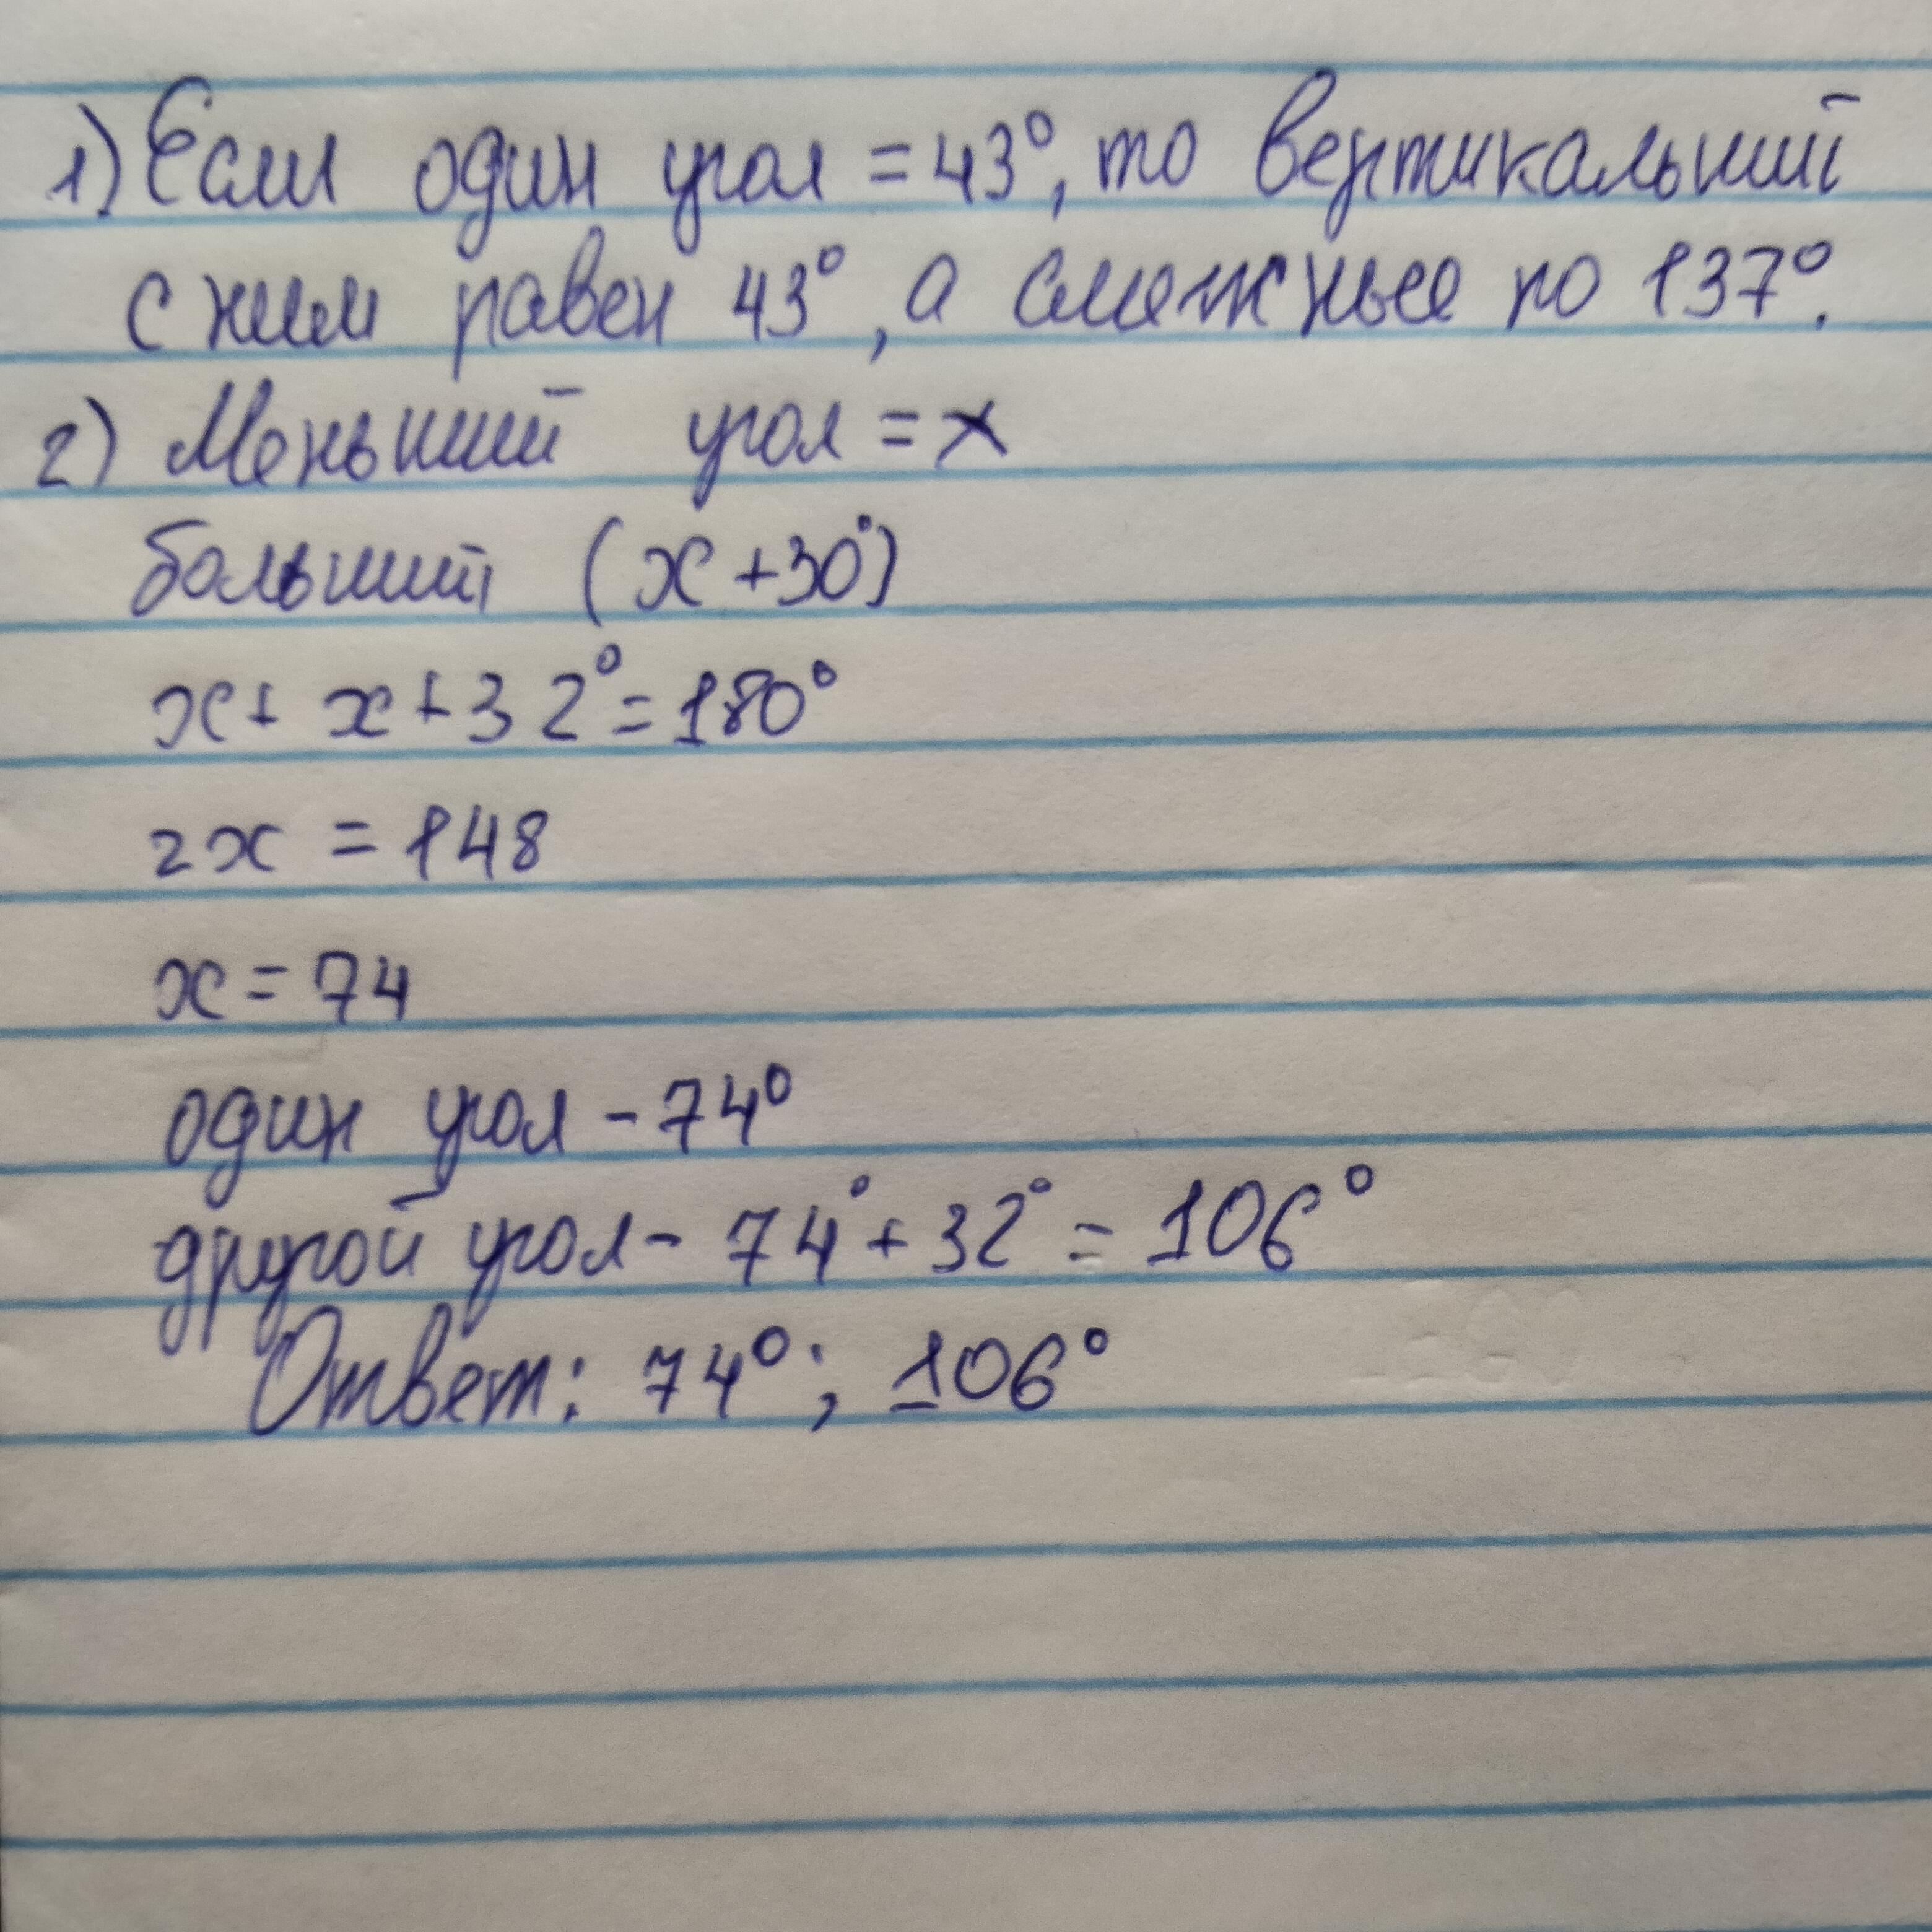 1) Если один угол = 43°, то вертикальный
с ним равен 43°, а смежные по 137°.
2) Меньший угол = x
больший (x + 30°)
x + x + 32° = 180°
2x = 148
x = 74
один угол - 74°
другой угол - 74° + 32° = 106°
Ответ: 74°; 106°